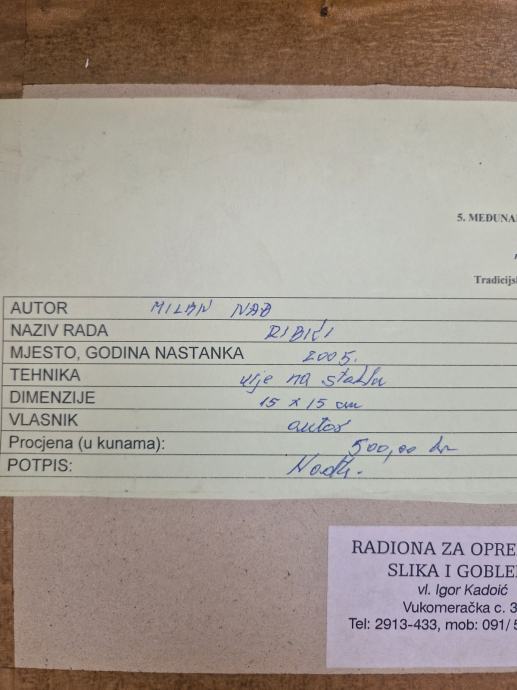 5. MEĐUNA
Tradicijsk
AUTOR MILAN NAĐ
NAZIV RADA RIBIČI
MJESTO, GODINA NASTANKA 2005.
TEHNIKA ulje na staklu
DIMENZIJE 15 x 15 cm
VLASNIK autor
Procjena (u kunama): 500,00 kn
POTPIS:
RADIONA ZA OPRE
SLIKA I GOBLE
vl. Igor Kadoić
Vukomeračka c. 3
Tel: 2913-433, mob: 091/ 5